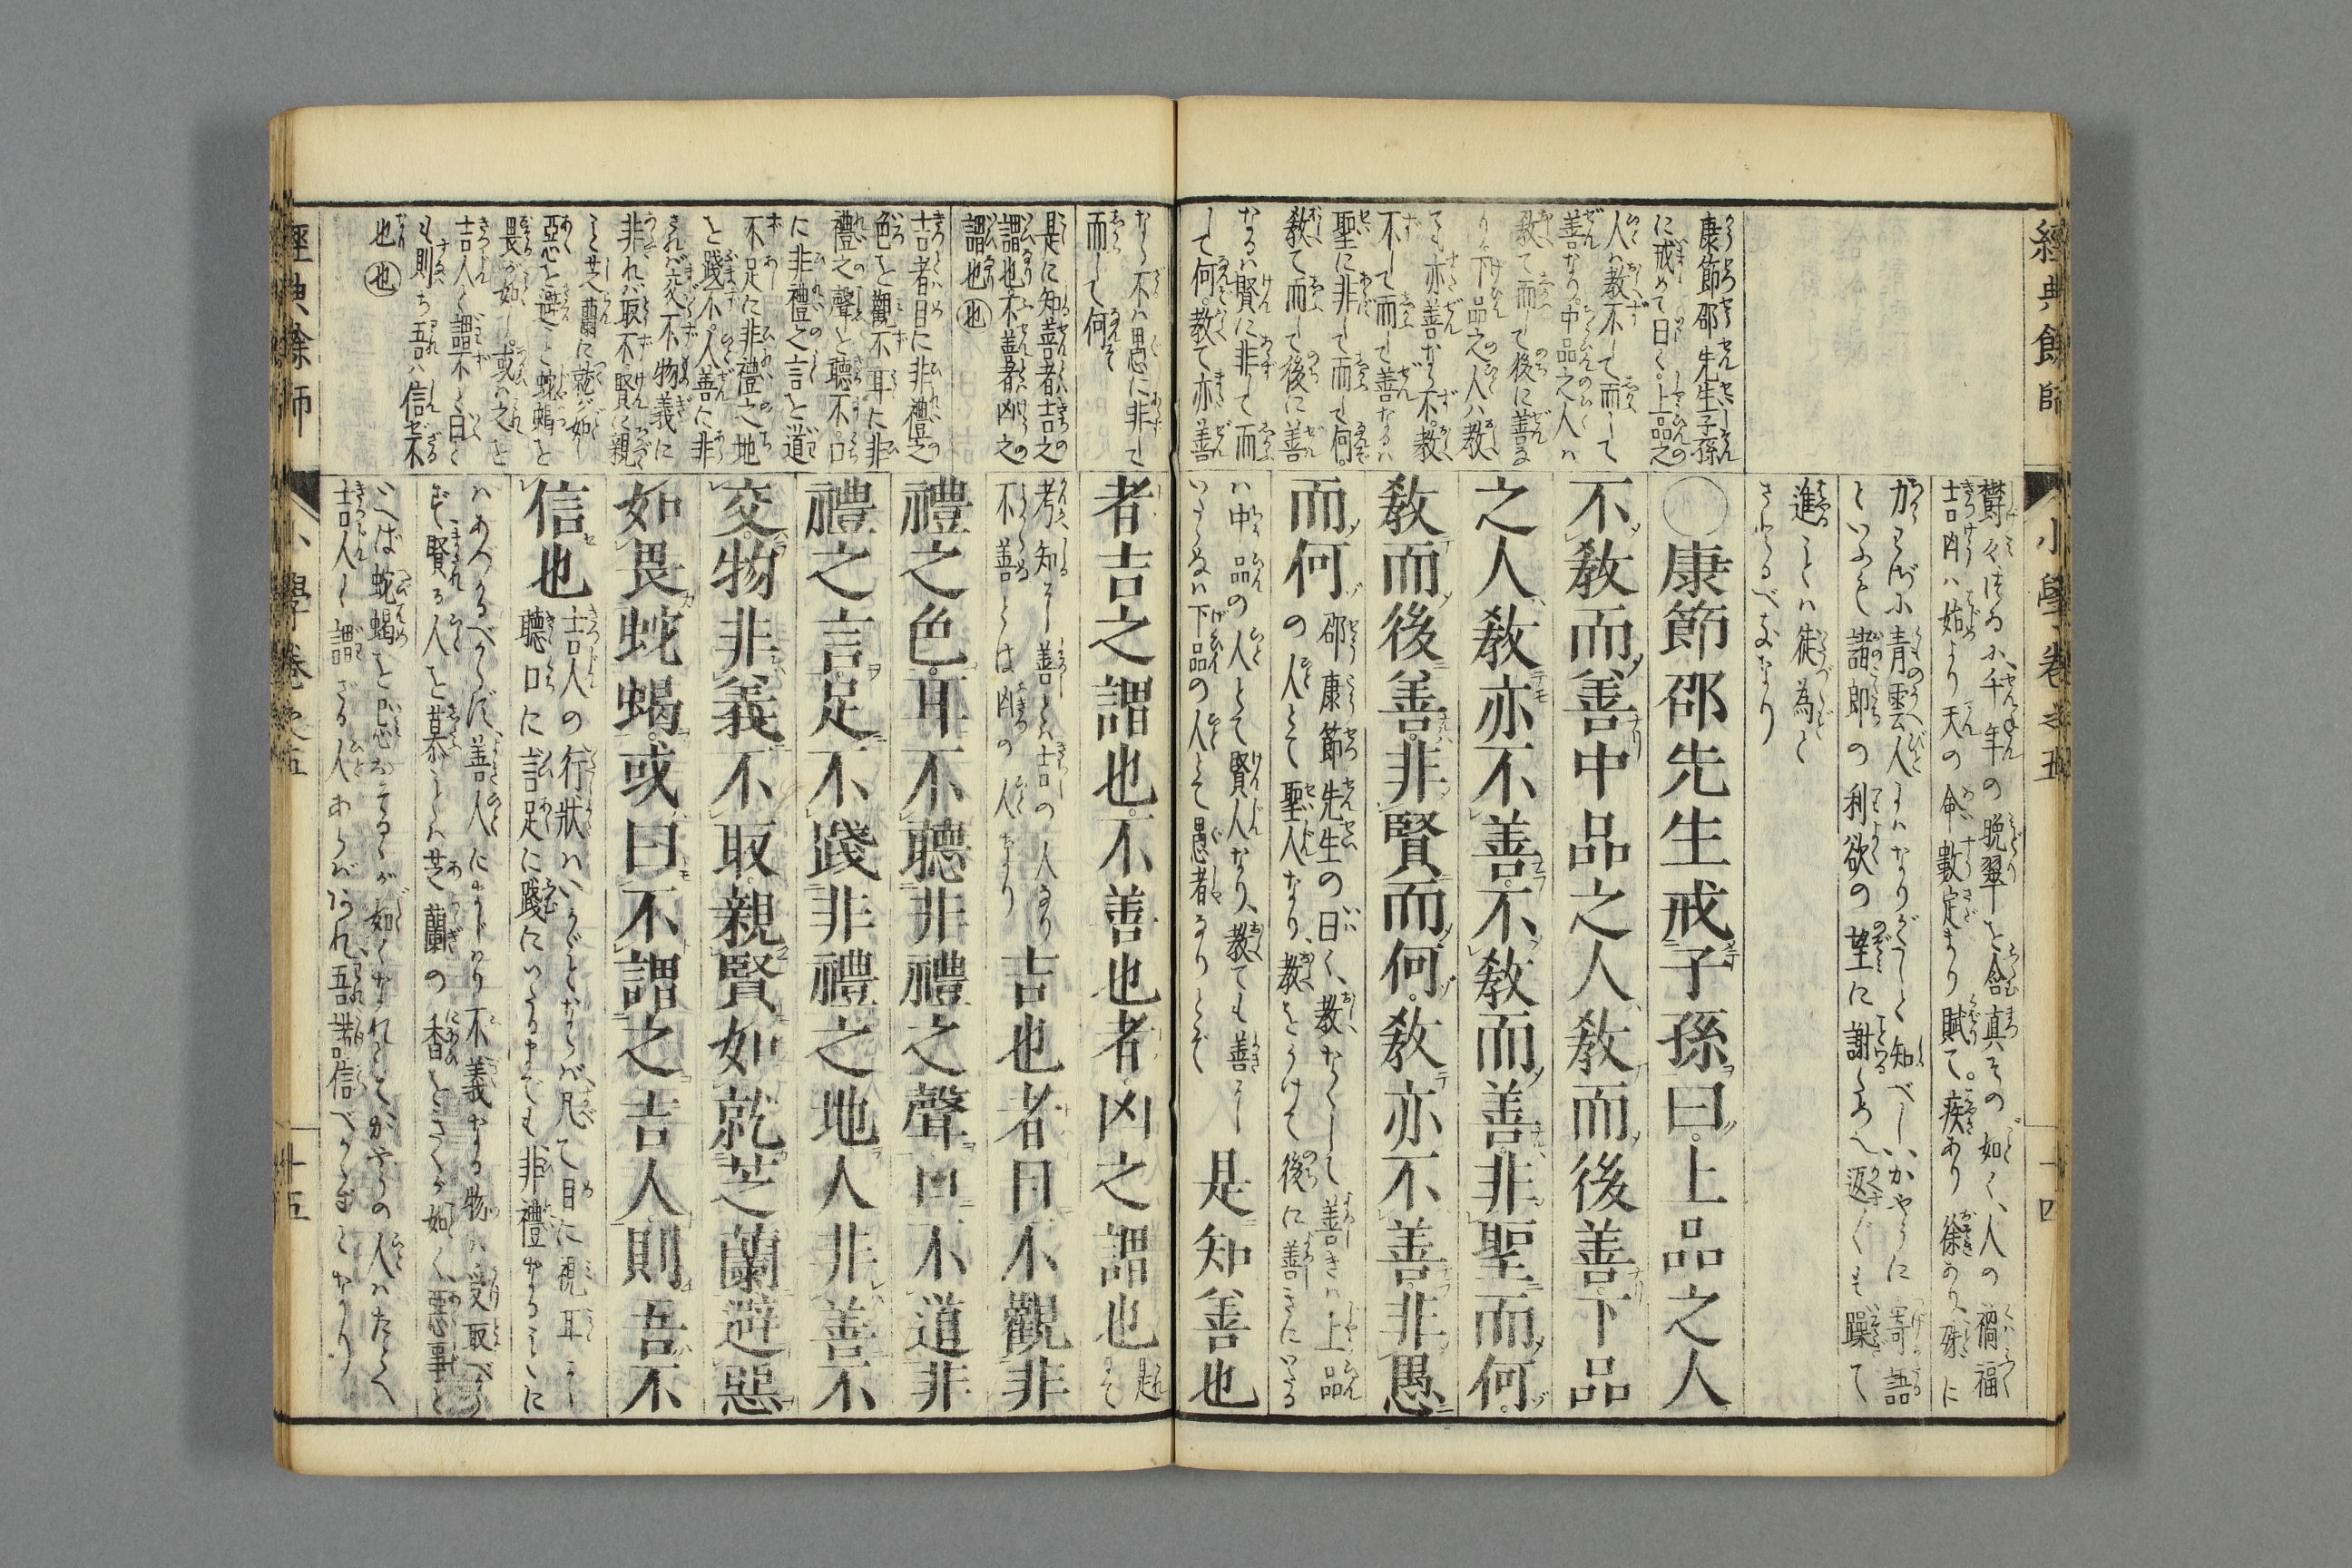 經典餘師
小學卷之五
十四
康節邵先生子孫
に戒めて曰く上品之
人ハ教不して而して
善なり中品之人ハ
教て而して後に善な
り下品之人ハ教
ても亦善なら不教
不して而して善なるハ
聖に非して而して何
教て而して後に善
なるハ賢に非して而
して何教て亦善
欝々
千年の晩翠を含
其の如く人の禍福
吉凶ハ始より天の命數定まり賦て疾あり徐あり
青雲
知べし
寄語
諸郎の利欲の望に謝
返
躁て
進ことハ徒為と
さとるべきなり
○康節邵先生戒子孫曰上品之人
不教而善中品之人教而後善下品
之人教亦不善不教而善非聖而何
教而後善非賢而何教亦不善非愚
而何
邵康節先生の曰く教なくして善きハ上品
の人とて聖人なり教をうけて後に善きにいたる
ハ中品の人とて賢人なり教ても善に
いたらぬハ下品の人とて愚者なりとぞ
是知善也
なら不ハ愚に非して
而して何
是に知善者吉之
謂也不善者凶之
謂也也
吉者目に非禮之
色を觀不耳に非
禮之聲を聽不口
に非禮之言を道
不足に非禮之地
を踐不人善に非
されバ交不物義に
非れバ取不賢に親
こと芝蘭に就が如し
惡を避こと蛇蝎を
畏が如し或ハ之を
吉人と謂不と曰く
も則ち吾ハ信ぜ不
也也
者吉之謂也不善也者凶之謂也
是をて
考知に善とハ吉の人なり
不善とは凶の人なり
吉也者目不觀非
禮之色耳不聽非禮之聲口不道非
禮之言足不踐非禮之地人非善不
交物非義不取親賢如就芝蘭避惡
如畏蛇蝎或曰不謂之吉人則吾不
信也
吉人の行狀ハいかゞとならバ凡て目に視耳に
聽口に言足に踐にいたるまでも非禮なることに
ハあづかるべからず善人にまじハり不義なる物ハ受取べから
ず賢き人を慕ことハ芝蘭の香をきくが如く惡事を
いへば蛇蝎を
如く
かやうの人ハたとへ
吉人と謂ざる人あらバあれ吾ハ
信べからずとなり
經典餘師
小學卷之五
十五